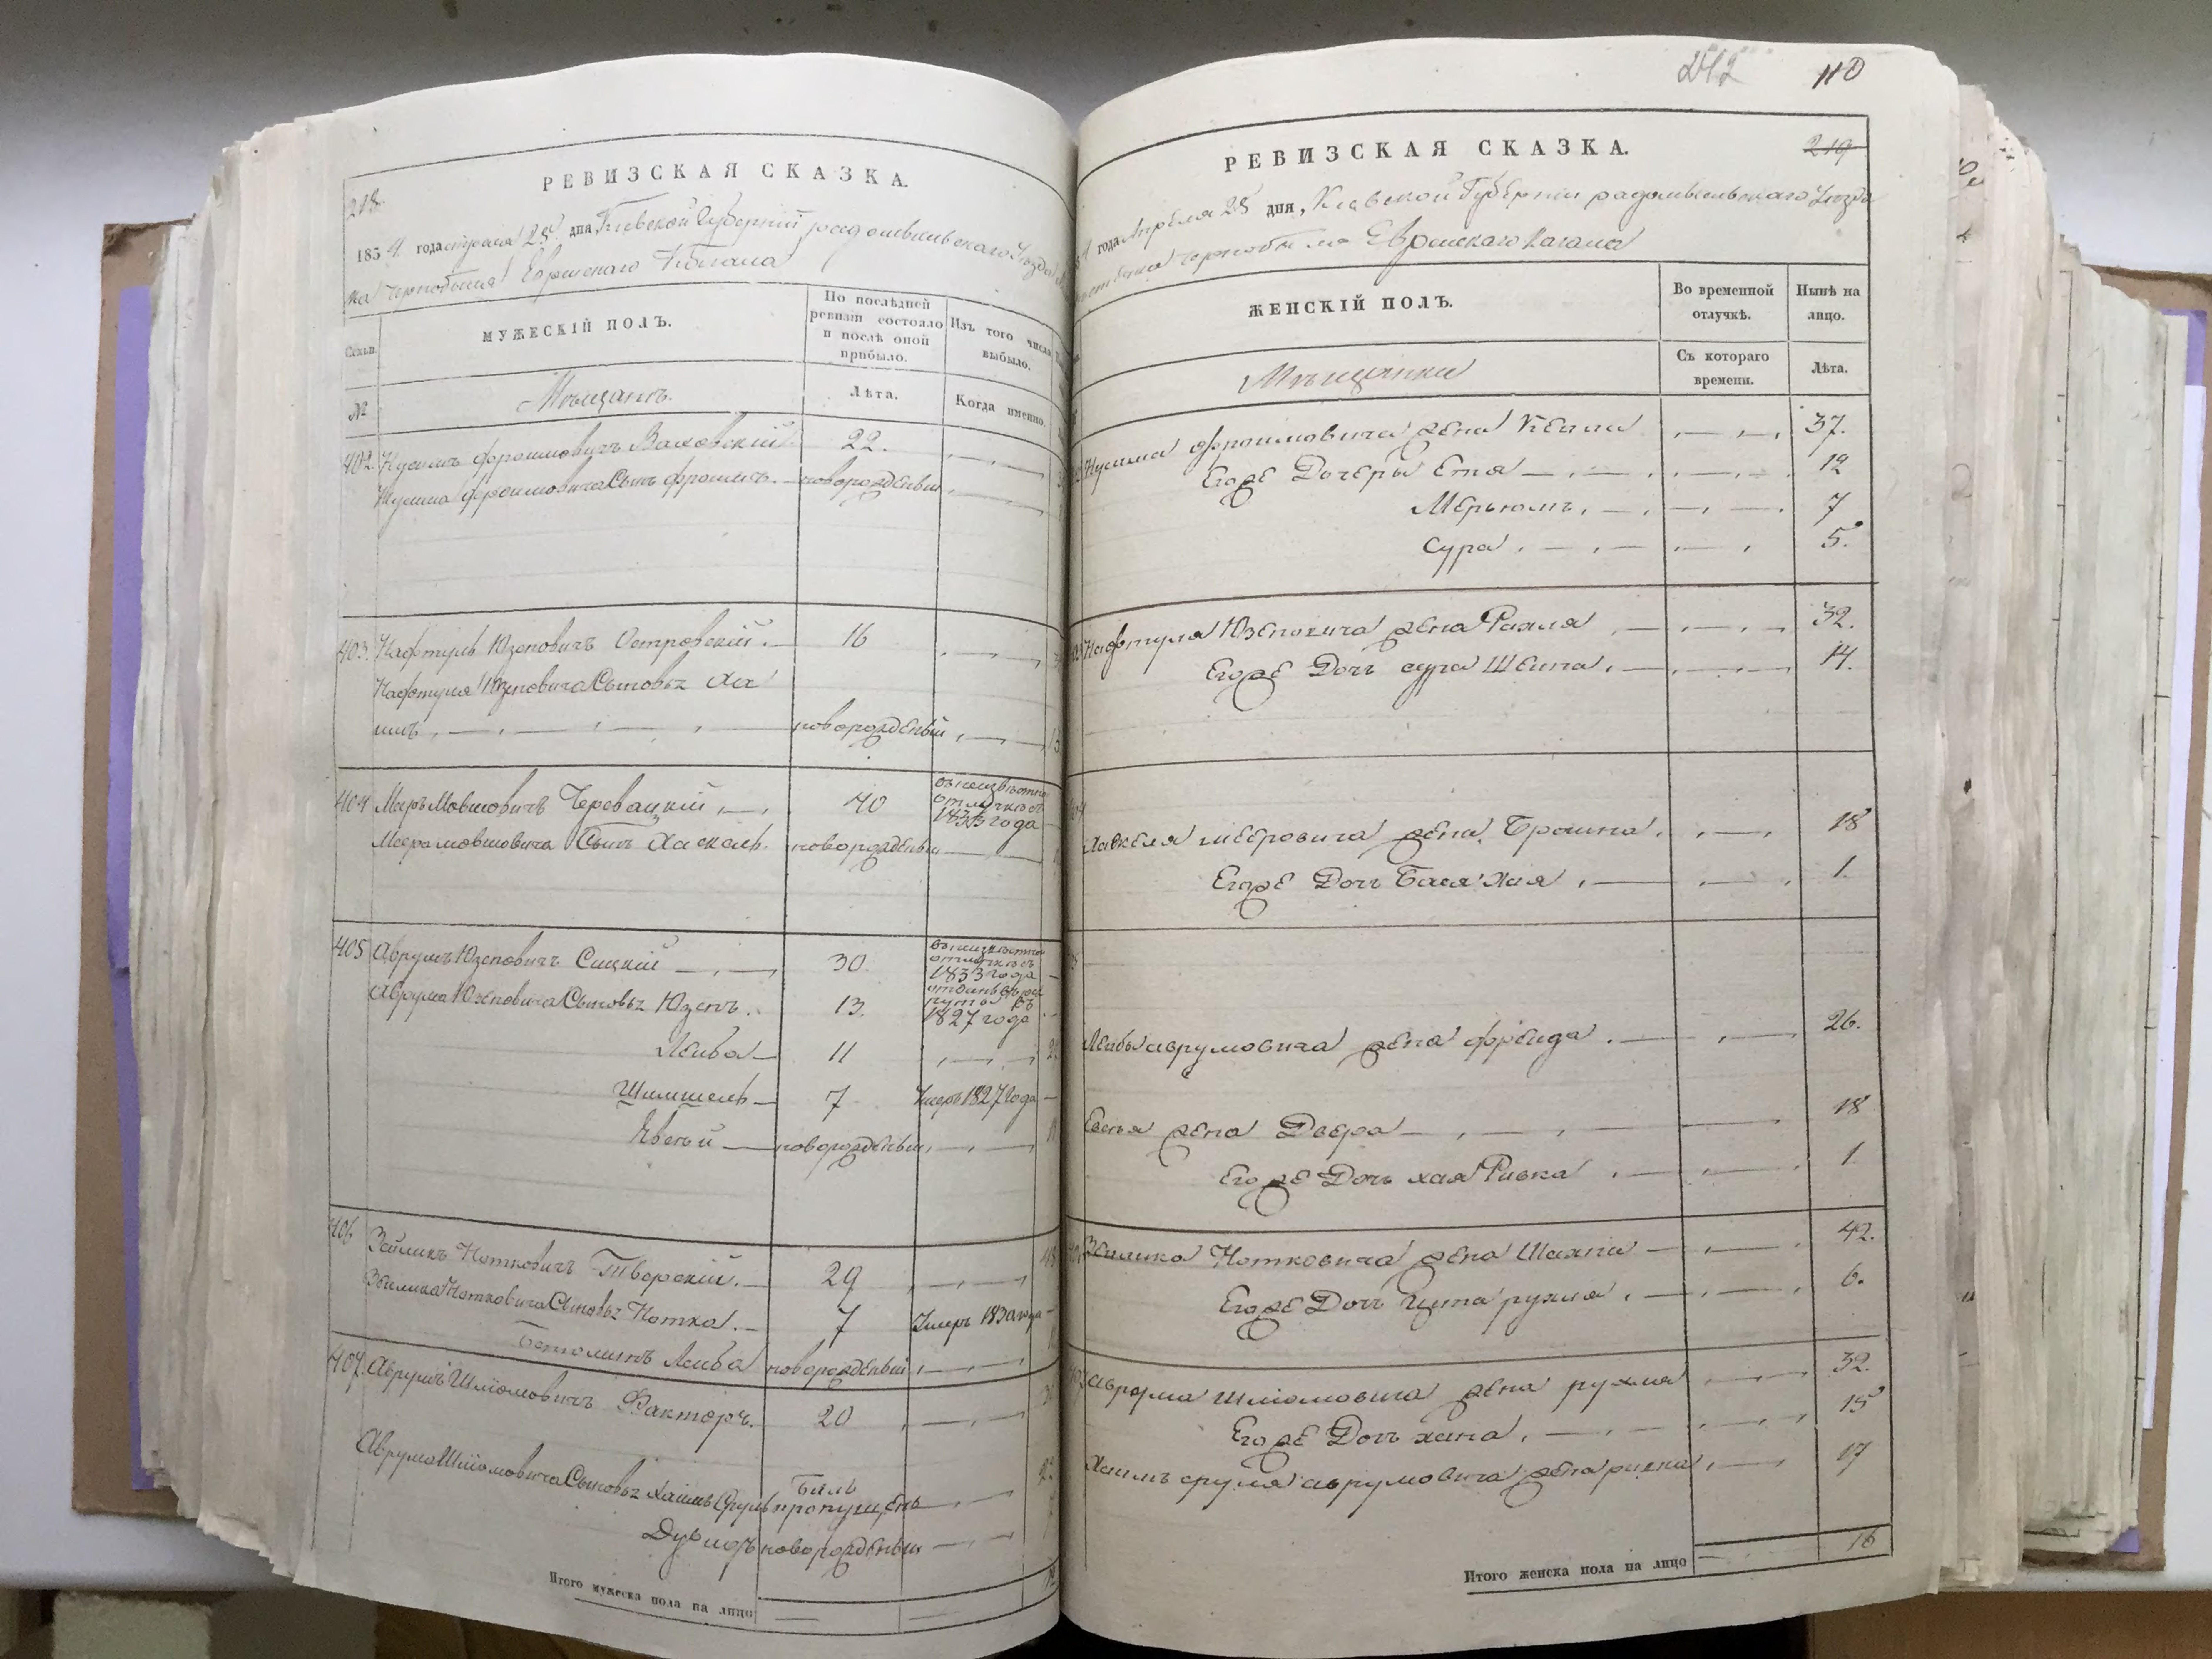 218.
РЕВИЗСКАЯ СКАЗКА.
1834 года апреля 25 дня, Киевской Губерніи, радомысльскаго Уезда
ка чернобыля Еврейскаго Кагала
Семьи.
МУЖЕСКІЙ ПОЛЪ.
По послѣдней ревизіи состояло и послѣ оной прибыло.
Изъ того числа выбыло.
№
Мѣщанъ.
Лѣта.
Когда именно.
402. Нусимъ Фроимовичъ 22.
Нусима Фроимовича Сынъ Фроимъ. новорожденый
403. Нафтуль Юзеповичъ Островскій. 16
Нафтуля Юзеповича Сыновья Ха
имъ новорожденый
404 Меръ Мовшовичъ Черевацкій 40 въ неизвѣстной отлучкѣ съ 1833 года
Меера мовшовича Сынъ Хаскель. новорожденый
405 Аврумъ Юзеповичъ Сицкій 30. въ неизвѣстной отлучкѣ съ 1833 года
Аврума Юзеповича Сыновья Юзепъ. 13. отданъ въ рекруты въ 1827 года
Леиба 11
Шимшель 7 Умеръ 1827 года
Евсей новорожденый
406 Зейликъ Нотковичъ Тверскій. 29
Зейлика Нотковича Сыновья Нотка. 7 Умеръ 1830 года
Лейба новорожденый
407. Аврумъ Шліомовичъ Факторъ. 20
Аврума Шліомовича Сыновья Хаимъ Сруль билъ пропущенъ
Дувидъ новорожденый
Итого мужеска пола на лицо
242 110
РЕВИЗСКАЯ СКАЗКА. 219
4 года Апреля 25 дня, Киевской Губерніи радомысльскаго Уезда
местечка чернобыля Еврейскаго Кагала
ЖЕНСКІЙ ПОЛЪ.
Во временной отлучкѣ.
Нынѣ на лицо.
Мѣщанки
Съ котораго времени.
Лѣта.
Нусима Фроимовича жена Кеила 37.
Егоже Дочеры Етя 12
Мерьюмъ 7
Сура 5.
Нафтуля Юзеповича жена Рахля 32.
Егоже Дочъ сура Шеина 14.
404
Хаскеля меёровича жена Броина 18
Егоже Дочъ Бася Хая 1
Леибы аврумовича жена фрейда 26.
Евсея жена Двера 18
Егоже Дочъ хая Ривка 1
Зеилика Нотковича жена 42.
Егоже Дочъ Ципа рухля 6.
аврума шліомовича жена рухля 32.
Егоже Дочъ хана 15
Хаимъ сруля аврумовича жена ривка 17
Итого женска пола на лицо 16